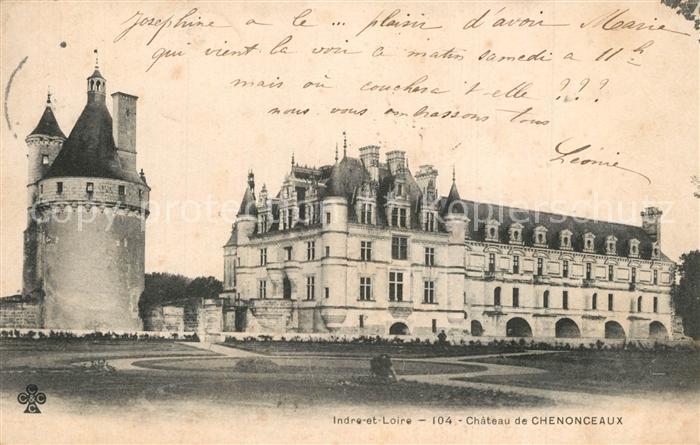 Josephine a le ... plaisir d'avoir Marie
qui vient la voir ce matin samedi a 11h
mais où couchera t-elle ???
nous vous embrassons tous
Léonie
Indre-et-Loire - 104 - Château de CHENONCEAUX